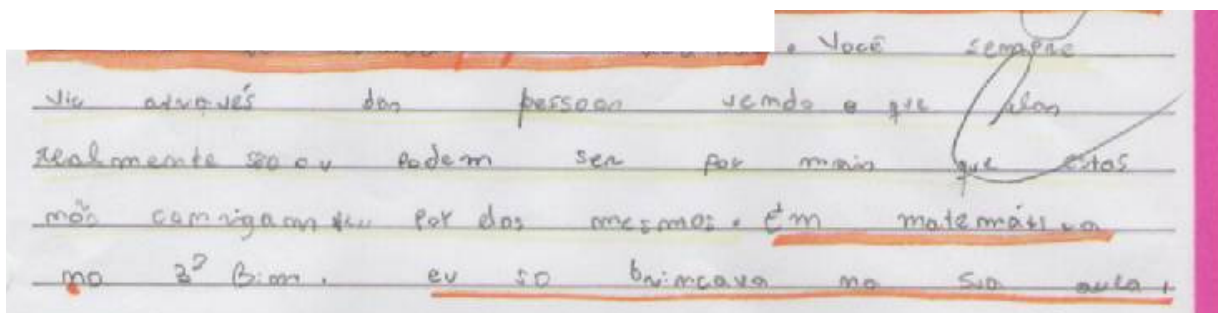 . Você sempre
viu através das pessoas vendo o que elas
realmente são ou podem ser por mais que estas
não consigam ver por das mesmas. Em matemática
no 3º Bim. eu só brincava na sua aula,